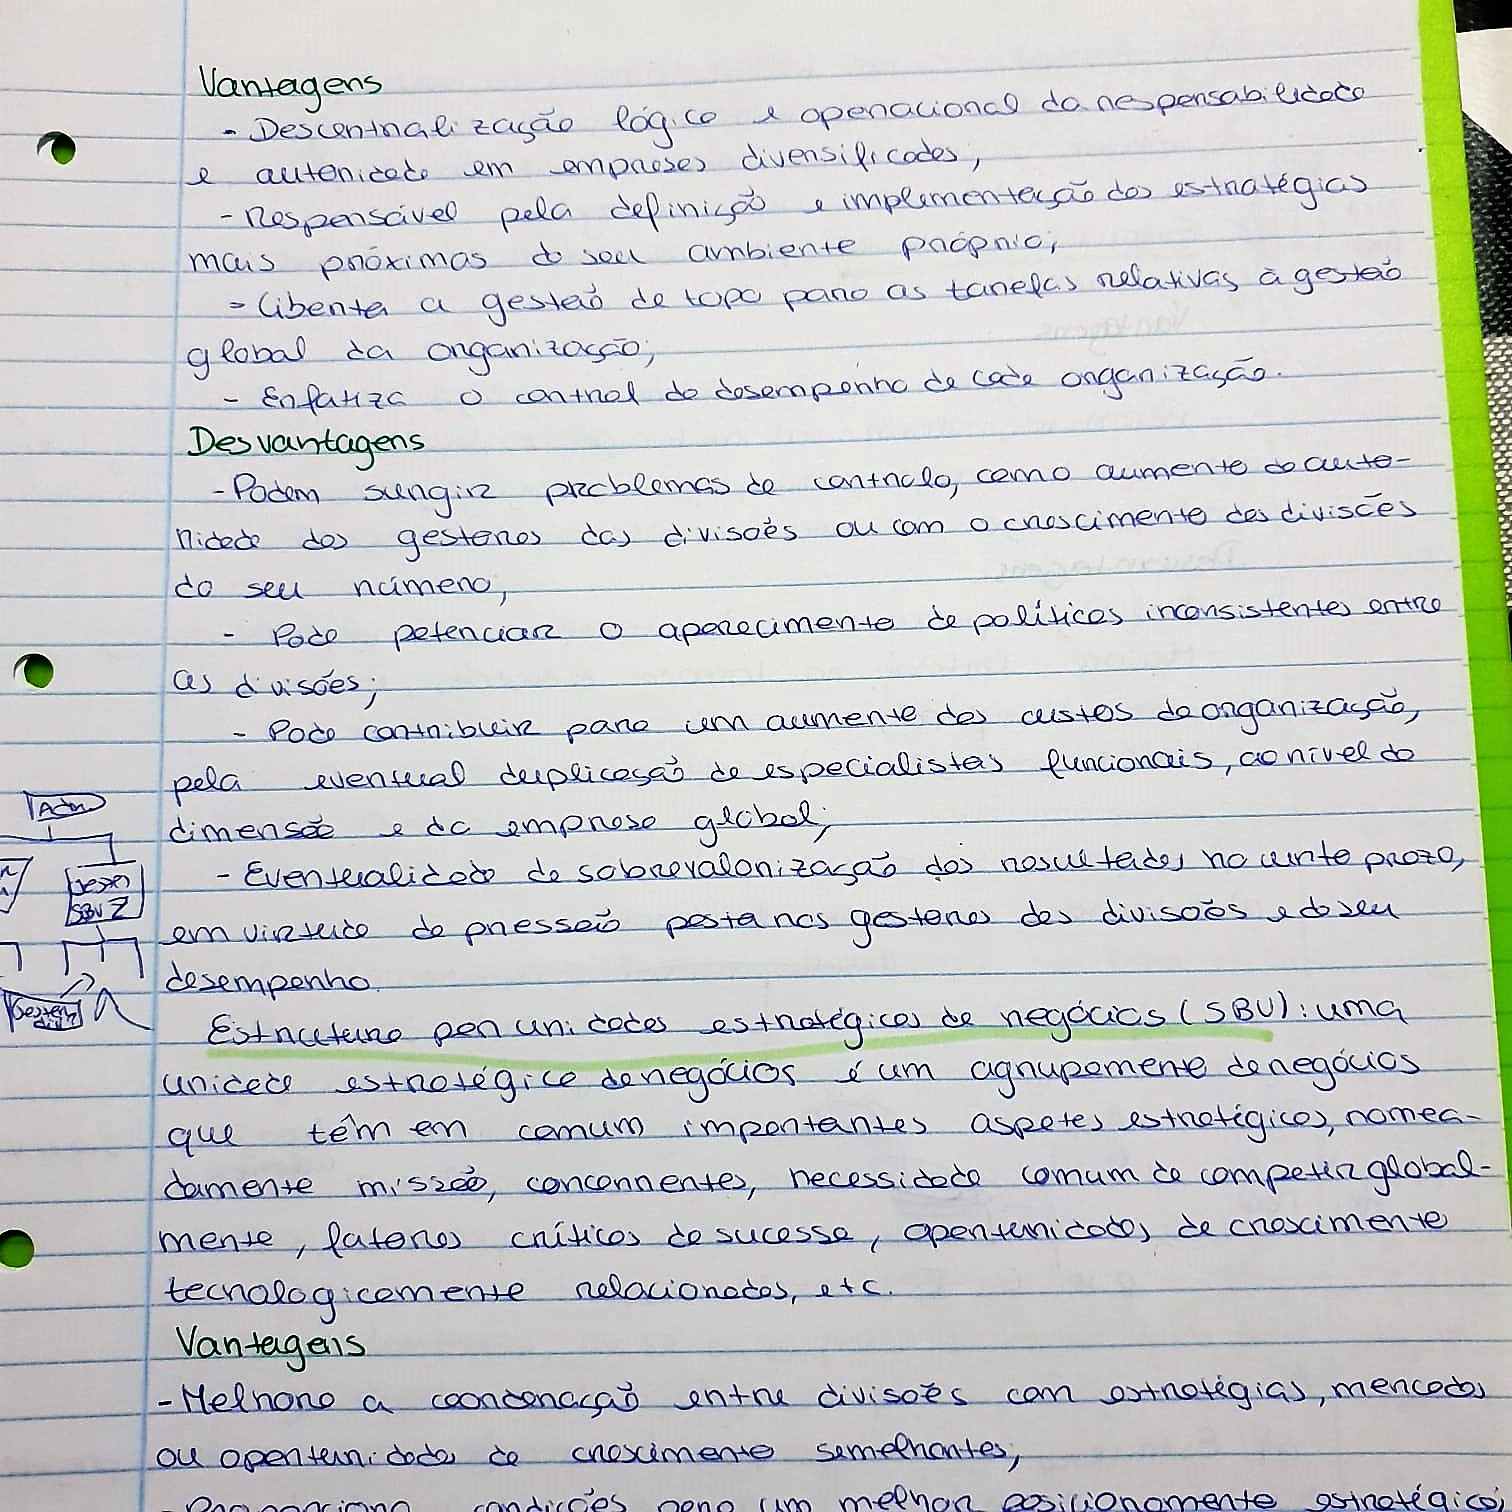 Vantagens
- Descentralização lógica e operacional da responsabilidade
e autoridade em empresas diversificadas;
- Responsável pela definição e implementação das estratégias
mais próximas do seu ambiente próprio;
- Liberta a gestão de topo para as tarefas relativas à gestão
global da organização;
- Enfatiza o control do desempenho de cada organização.
Desvantagens
- Podem surgir problemas de controlo, como aumento da auto-
ridade dos gestores das divisões ou com o crescimento das divisões
do seu número,
- Pode potenciar o aparecimento de políticas inconsistentes entre
as divisões;
- Pode contribuir para um aumento dos custos da organização,
pela eventual duplicação de especialistas funcionais, ao nível da
dimensão e da empresa global;
- Eventualidade de sobrevalorização dos resultados no curto prazo,
em virtude da pressão posta nos gestores das divisões e do seu
desempenho.
Adm
Gestor
SBU 2
Gestor
div
Estrutura por unidades estratégicas de negócios (SBU): uma
unidade estratégica de negócios é um agrupamento de negócios
que têm em comum importantes aspetos estratégicos, nomea-
damente missão, concorrentes, necessidade comum de competir global-
mente, fatores críticos de sucesso, oportunidades de crescimento
tecnologicamente relacionadas, etc.
Vantagens
- Melhora a coordenação entre divisões com estratégias, mercados
ou oportunidades de crescimento semelhantes;
- Proporciona condições para um melhor posicionamento estratégico